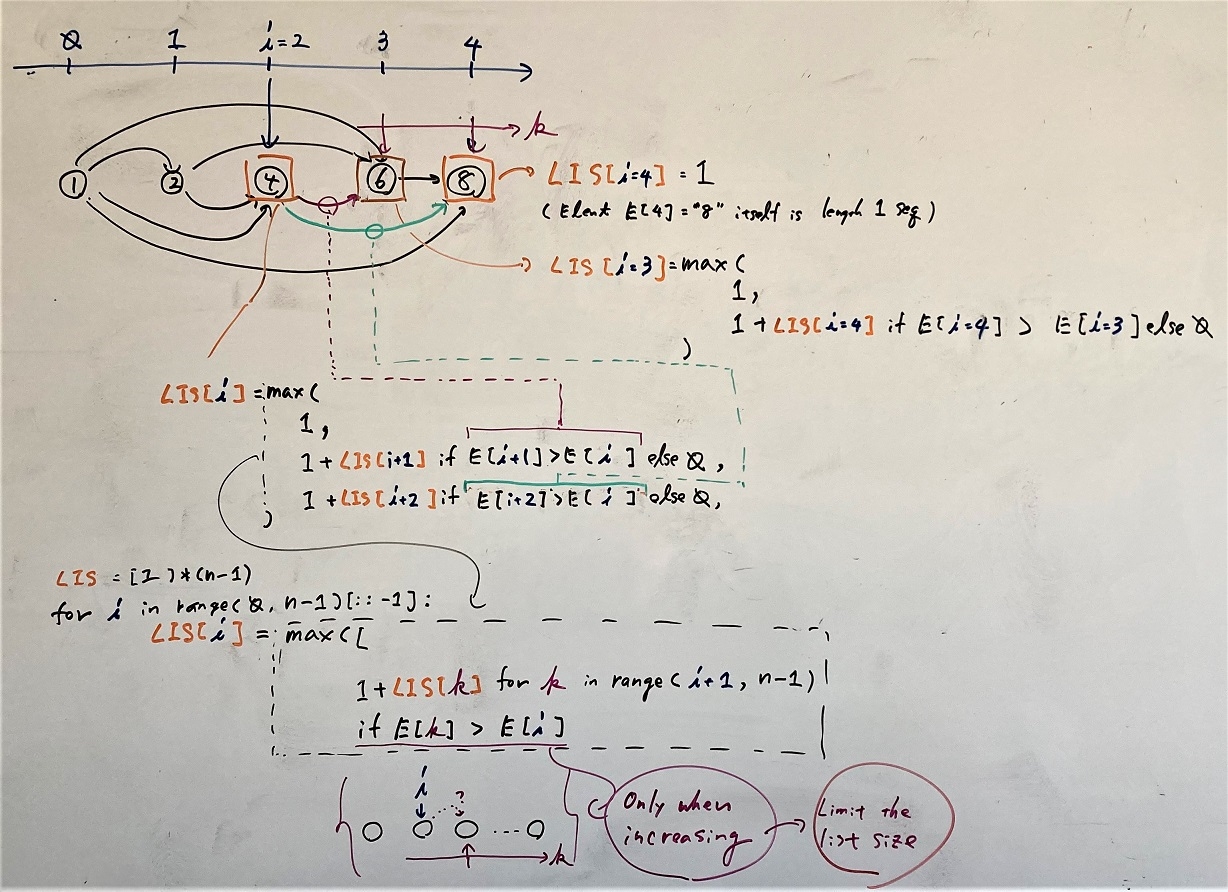 0 1 i=2 3 4
k
1 2 4 6 8
LIS[i=4] = 1
(Elent E[4]="8" itself is length 1 seq)
LIS[i=3]=max(
1,
1+LIS[i=4] if E[i=4] > E[i=3] else 0
)
LIS[i]=max(
1,
1+LIS[i+1] if E[i+1]>E[i] else 0,
1+LIS[i+2] if E[i+2]>E[i] else 0,
)
LIS = [1]*(n-1)
for i in range(0, n-1)[::-1]:
LIS[i] = max([
1+LIS[k] for k in range(i+1, n-1)
if E[k] > E[i]
i
?
...
k
Only when
increasing
Limit the
list size